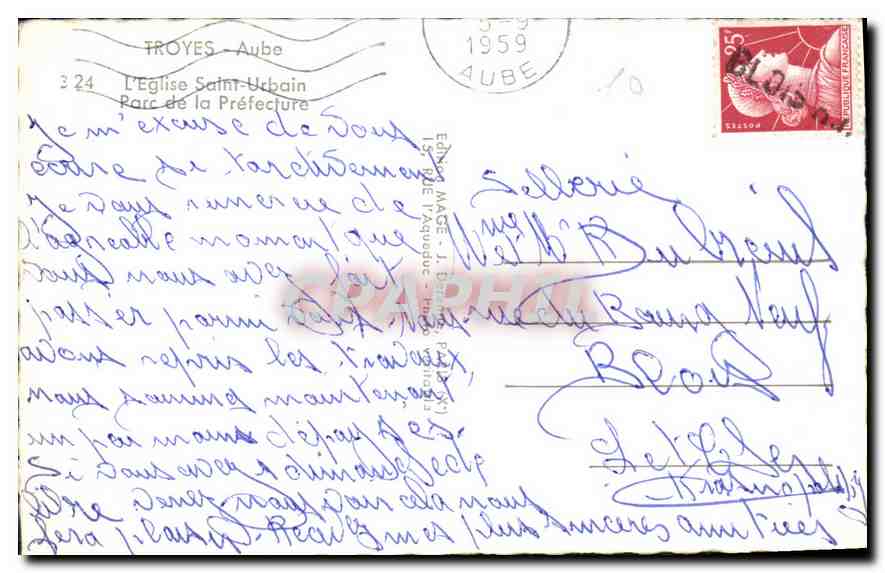 TROYES - Aube
324 L'Eglise Saint-Urbain
Parc de la Préfecture
5-9
1959
AUBE
10
25F
POSTES
REPUBLIQUE FRANÇAISE
BLOIS
Je m'excuse de vous
écrire si tardivement
Je vous remercie de
l'agréable moment que
vous nous avez fait
passer parmi vous. Nous
avons repris les travaux,
nous sommes maintenant
un peu moins dépaysés.
Si vous avez 1 dimanche de
libre venez nous voir cela nous
fera plaisir. Recevez mes plus sincères amitiés
Edition MAGE - J. PARIS (Xe)
15, RUE l'Aqueduc - Photo Véritable
CPAPHIL
Sellerie
Mme et Mr
rue du Bourg Neuf
Blois
L et Cher